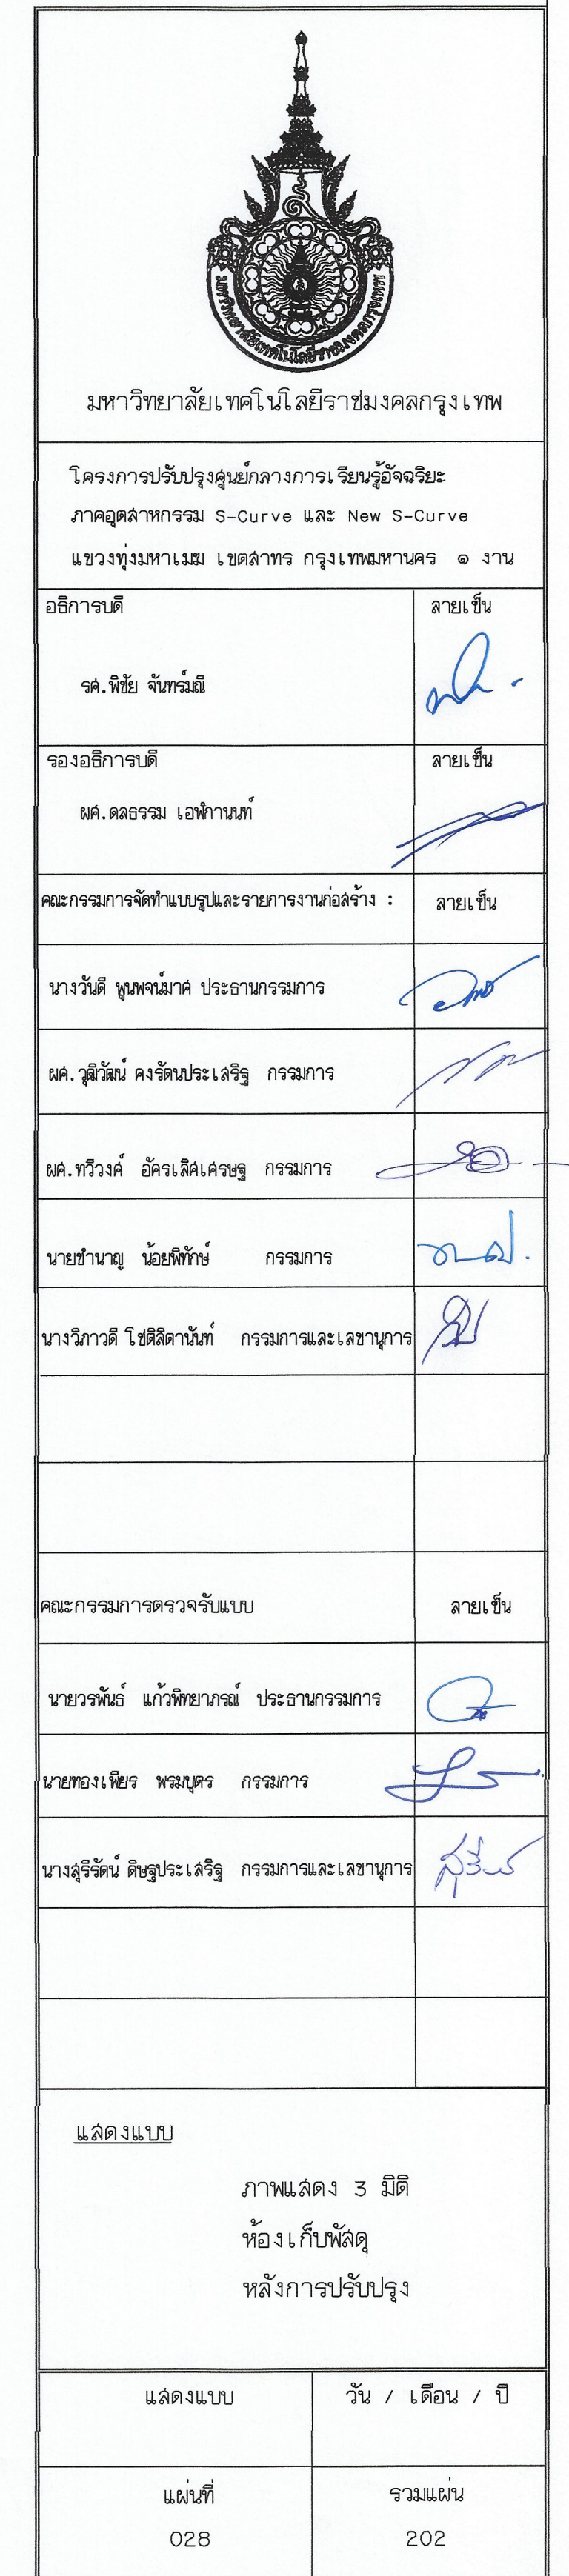 มหาวิทยาลัยเทคโนโลยีราชมงคลกรุงเทพ
มหาวิทยาลัยเทคโนโลยีราชมงคลกรุงเทพ
โครงการปรับปรุงศูนย์กลางการเรียนรู้อัจฉริยะ
ภาคอุตสาหกรรม S-Curve และ New S-Curve
แขวงทุ่งมหาเมฆ เขตสาทร กรุงเทพมหานคร ๑ งาน
อธิการบดี ลายเซ็น
รศ.พิชัย จันทร์มณี
รองอธิการบดี ลายเซ็น
ผศ.ดลธรรม เอฬกานนท์
คณะกรรมการจัดทำแบบรูปและรายการงานก่อสร้าง : ลายเซ็น
นางวันดี พูนพจน์มาศ ประธานกรรมการ
ผศ.วุฒิวัฒน์ คงรัตนประเสริฐ กรรมการ
ผศ.ทวีวงศ์ อัครเลิศเศรษฐ กรรมการ
นายชำนาญ น้อยพิทักษ์ กรรมการ
นางวิภาวดี โชติลิตานันท์ กรรมการและเลขานุการ
คณะกรรมการตรวจรับแบบ ลายเซ็น
นายวรพันธ์ แก้วพิทยาภรณ์ ประธานกรรมการ
นายทองเพียร พรมบุตร กรรมการ
นางสุรีรัตน์ ดิษฐประเสริฐ กรรมการและเลขานุการ
แสดงแบบ
ภาพแสดง 3 มิติ
ห้องเก็บพัสดุ
หลังการปรับปรุง
แสดงแบบ วัน / เดือน / ปี
แผ่นที่ รวมแผ่น
028 202